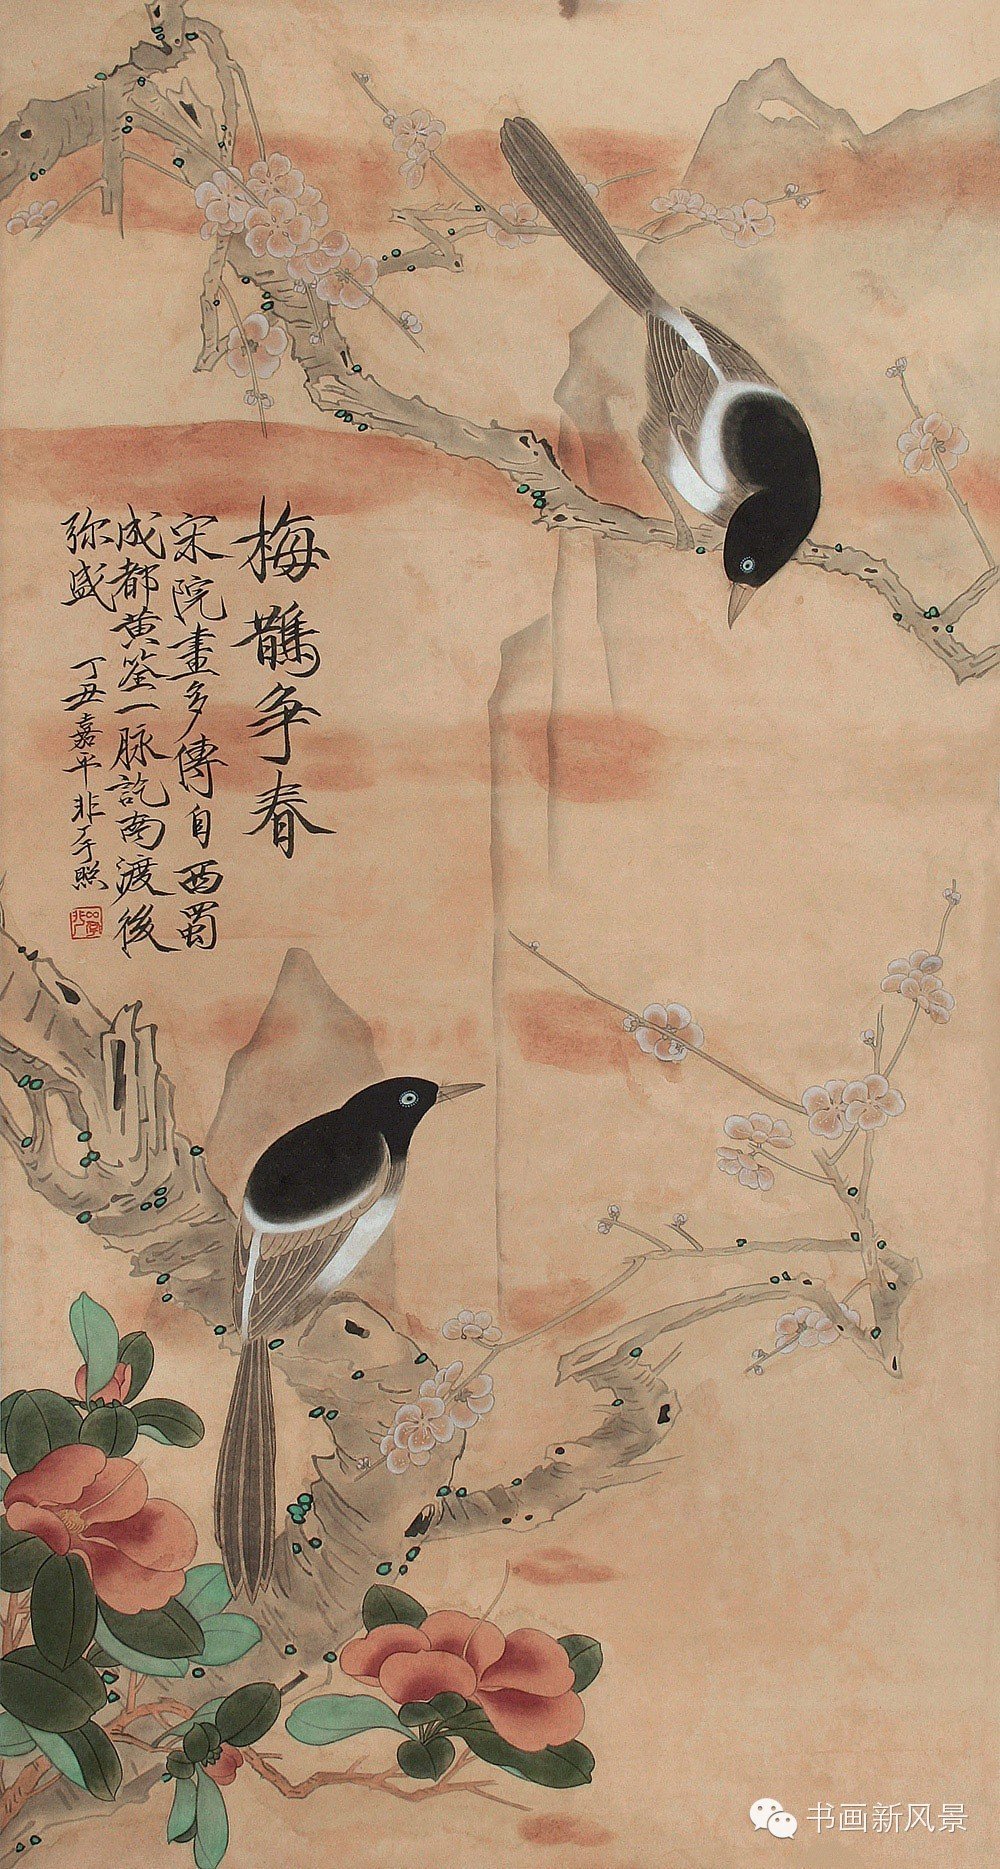 梅鵲争春
宋院畫多傳自西蜀
成都黄筌一脉訖南渡後
弥盛
丁丑嘉平非厂于照
书画新风景